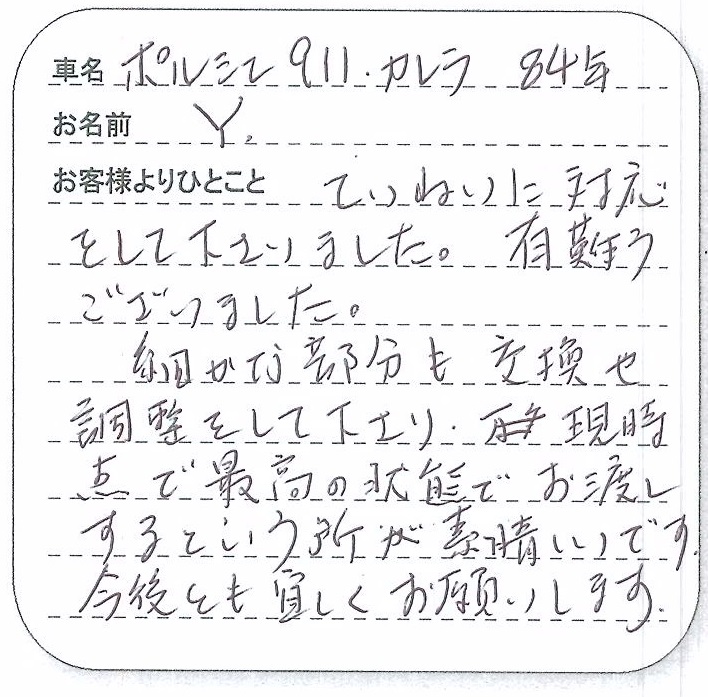 車名 ポルシェ 911.カレラ 84年
お名前 Y.
お客様よりひとこと ていねいに対応
をして下さいました。有難う
ございました。
細かな部分も交換や
調整をして下さり、現時
点で最高の状態でお渡し
するという所が素晴しいです.
今後とも宜しくお願いします.